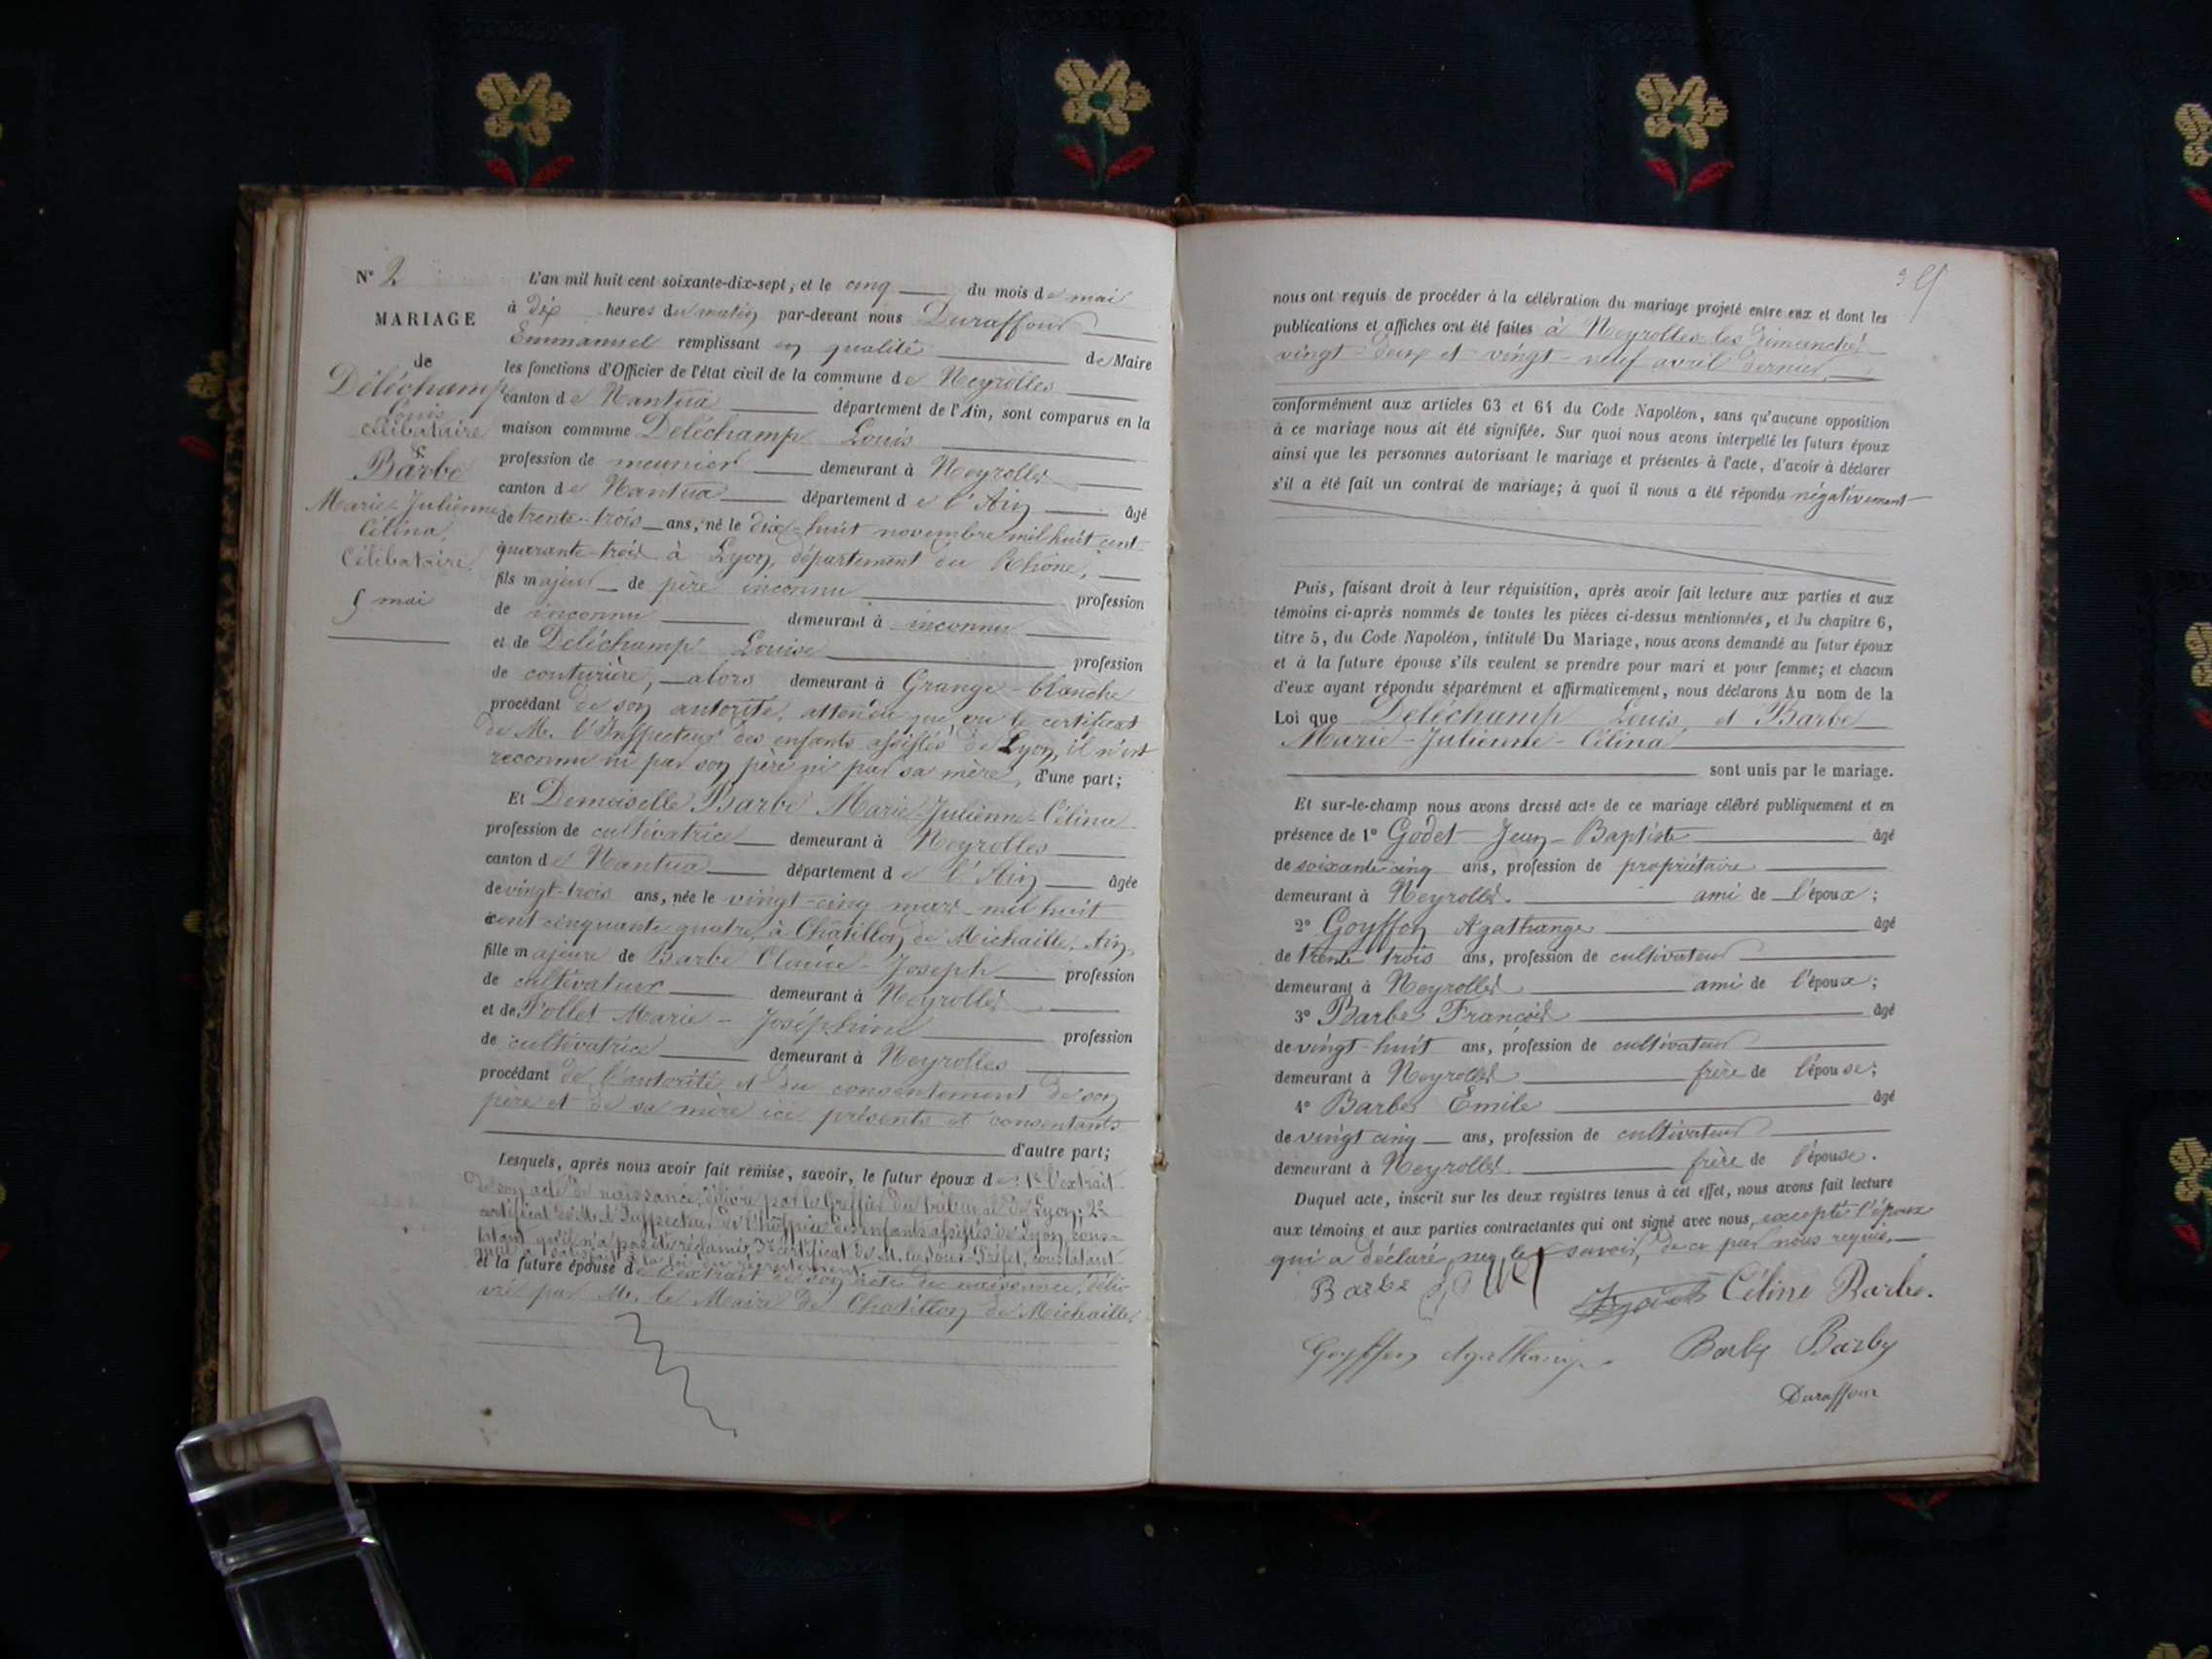 N° 2
MARIAGE
de
Déléchamp
Louis
célibataire
&
Barbe
Marie-Julienne
Célina,
Célibataire.
5 mai
L'an mil huit cent soixante-dix-sept, et le cinq du mois de mai
à dix heures du matin par-devant nous Duraffour
Emmanuel remplissant en qualité de Maire
les fonctions d'Officier de l'état civil de la commune de Neyrolles
canton de Nantua département de l'Ain, sont comparus en la
maison commune Déléchamp Louis
profession de meunier demeurant à Neyrolles
canton de Nantua département de l'Ain âgé
de trente-trois ans, né le dix-huit novembre mil huit cent
quarante-trois à Lyon, département du Rhône,
fils majeur de père inconnu profession
de inconnu demeurant à inconnu
et de Déléchamp Louise profession
de couturière, alors demeurant à Grange-blanche
procédant de son autorité, attendu que, vu le certificat
de M. l'Inspecteur des enfants assistés de Lyon, il n'est
reconnu ni par son père ni par sa mère, d'une part;
Et Demoiselle Barbe Marie-Julienne-Célina
profession de cultivatrice demeurant à Neyrolles
canton de Nantua département de l'Ain âgée
de vingt-trois ans, née le vingt-cinq mars mil huit
cent cinquante quatre, à Châtillon de Michaille, Ain,
fille majeure de Barbe Claude-Joseph profession
de cultivateur demeurant à Neyrolles
et de Pollet Marie-Joséphine profession
de cultivatrice demeurant à Neyrolles
procédant de l'autorité et du consentement de son
père et de sa mère ici présents et consentants
d'autre part;
Lesquels, après nous avoir fait remise, savoir, le futur époux de: 1° l'extrait
de son acte de naissance, délivré par le Greffier du tribunal de Lyon; 2°
certificat de M. l'Inspecteur de l'hospice des enfants assistés de Lyon, cons-
tatant qu'il n'a pas été réclamé, 3° certificat de M. le Sous-Préfet, constatant
qu'il a satisfait à la loi du recrutement
et la future épouse de l'extrait de son acte de naissance, déli-
vré par M. le Maire de Châtillon de Michaille.
nous ont requis de procéder à la célébration du mariage projeté entre eux et dont les
publications et affiches ont été faites à Neyrolles les dimanches
vingt-deux et vingt-neuf avril dernier,
conformément aux articles 63 et 64 du Code Napoléon, sans qu'aucune opposition
à ce mariage nous ait été signifiée. Sur quoi nous avons interpellé les futurs époux
ainsi que les personnes autorisant le mariage et présentes à l'acte, d'avoir à déclarer
s'il a été fait un contrat de mariage; à quoi il nous a été répondu négativement
Puis, faisant droit à leur réquisition, après avoir fait lecture aux parties et aux
témoins ci-après nommés de toutes les pièces ci-dessus mentionnées, et du chapitre 6,
titre 5, du Code Napoléon, intitulé Du Mariage, nous avons demandé au futur époux
et à la future épouse s'ils veulent se prendre pour mari et pour femme; et chacun
d'eux ayant répondu séparément et affirmativement, nous déclarons Au nom de la
Loi que Déléchamp Louis et Barbe
Marie-Julienne-Célina
sont unis par le mariage.
Et sur-le-champ nous avons dressé acte de ce mariage célébré publiquement et en
présence de 1° Godet Jean-Baptiste âgé
de soixante cinq ans, profession de propriétaire
demeurant à Neyrolles. ami de l'époux;
2° Goyffon Agathange âgé
de trente trois ans, profession de cultivateur
demeurant à Neyrolles ami de l'époux;
3° Barbe François âgé
de vingt-huit ans, profession de cultivateur
demeurant à Neyrolles frère de l'épouse;
4° Barbe Emile âgé
de vingt cinq ans, profession de cultivateur
demeurant à Neyrolles. frère de l'épouse.
Duquel acte, inscrit sur les deux registres tenus à cet effet, nous avons fait lecture
aux témoins et aux parties contractantes qui ont signé avec nous, excepté l'époux
qui a déclaré ne le savoir, de ce par nous requis.
Barbe Céline Barbe.
Goyffon Agathange Barbe Barby
Duraffour